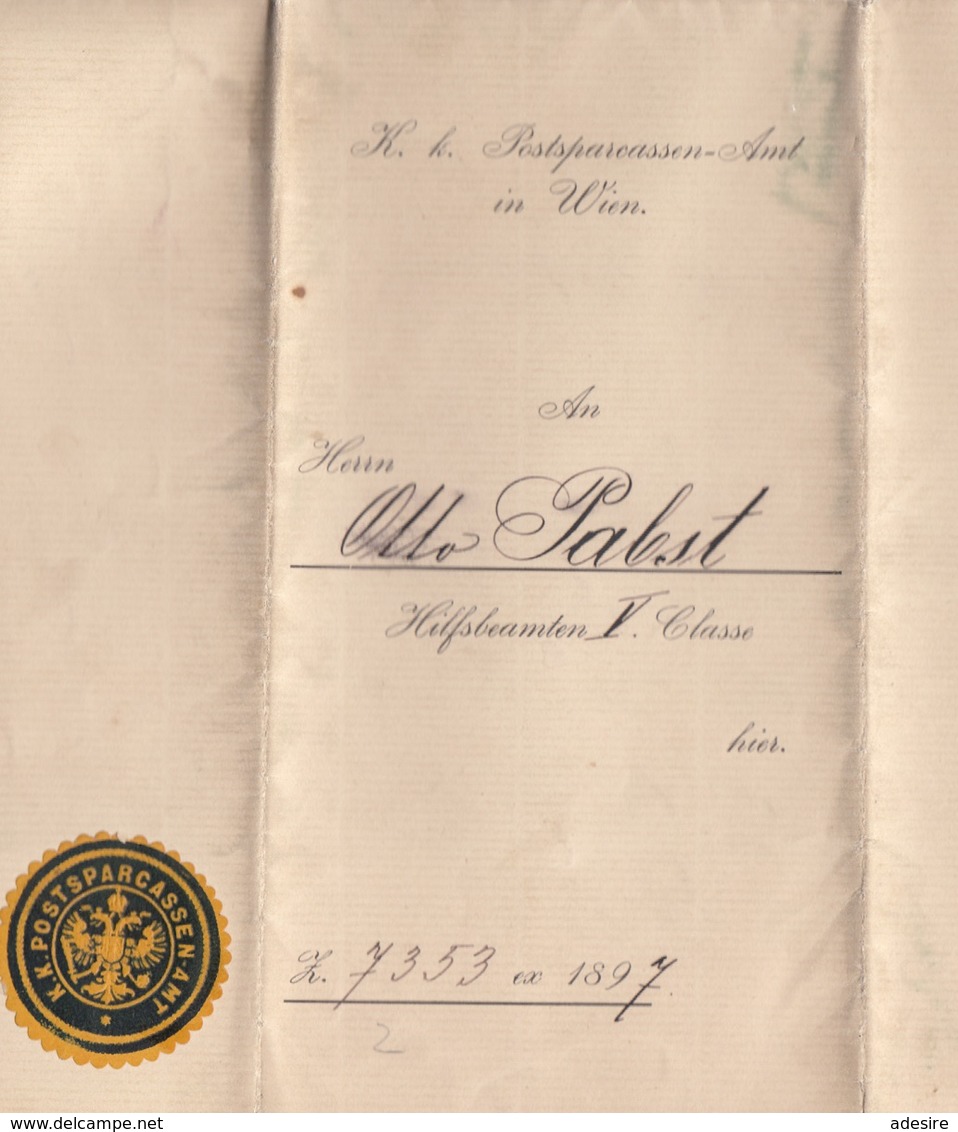 K. k. Postsparcassen-Amt
in Wien.
An
Herrn
Otto Pabst
Hilfsbeamten V. Classe
hier.
K.K. POSTSPARCASSEN-AMT *
Z. 7353 ex 1897.
2
www.delcampe.net
adesire